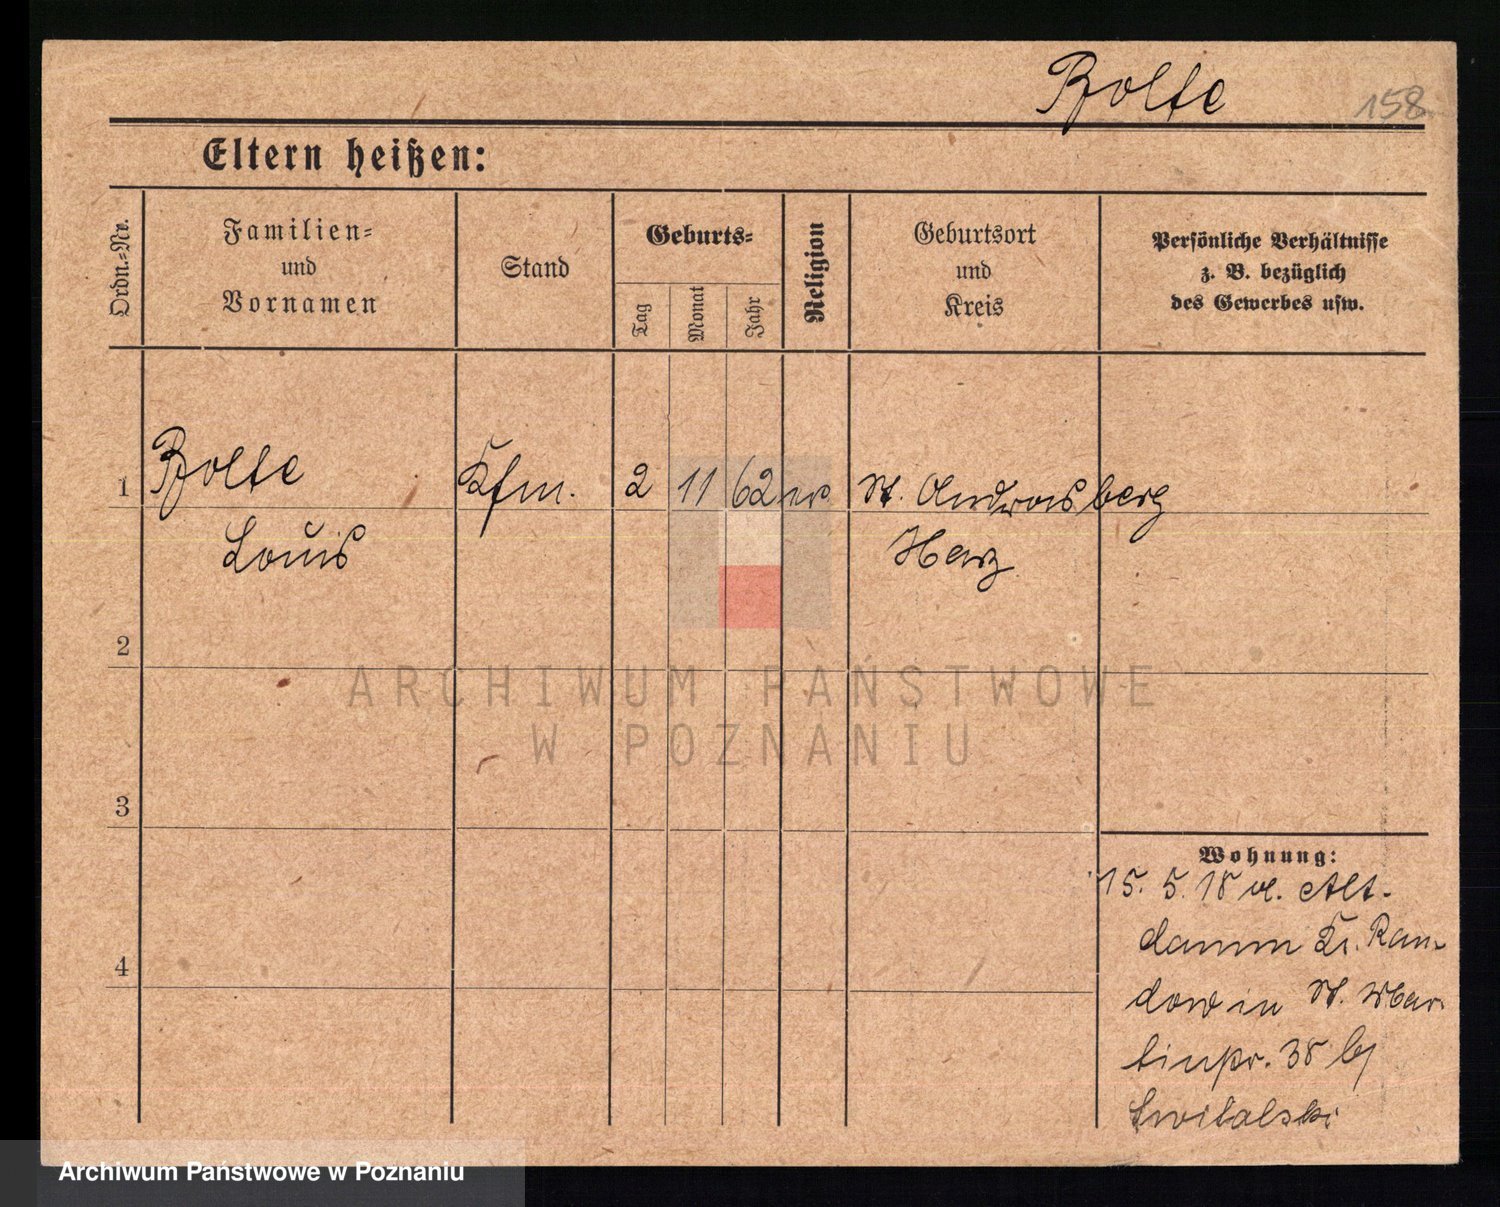 Bolte
158
Eltern heißen:
Ordn.-Nr.
Familien-
und
Vornamen
Stand
Geburts-
Tag
Monat
Jahr
Religion
Geburtsort
und
Kreis
Persönliche Verhältnisse
z. B. bezüglich
des Gewerbes usw.
1 Bolte Kfm. 2 11 62 ev. St. Andreasberg
Louis Harz
2
3
4
Wohnung:
15. 5. 18 vl. Alt-
damm Kr. Ran-
dow in St. Mar-
tinstr. 38 bj
Switalski
ARCHIWUM PAŃSTWOWE
W POZNANIU
Archiwum Państwowe w Poznaniu